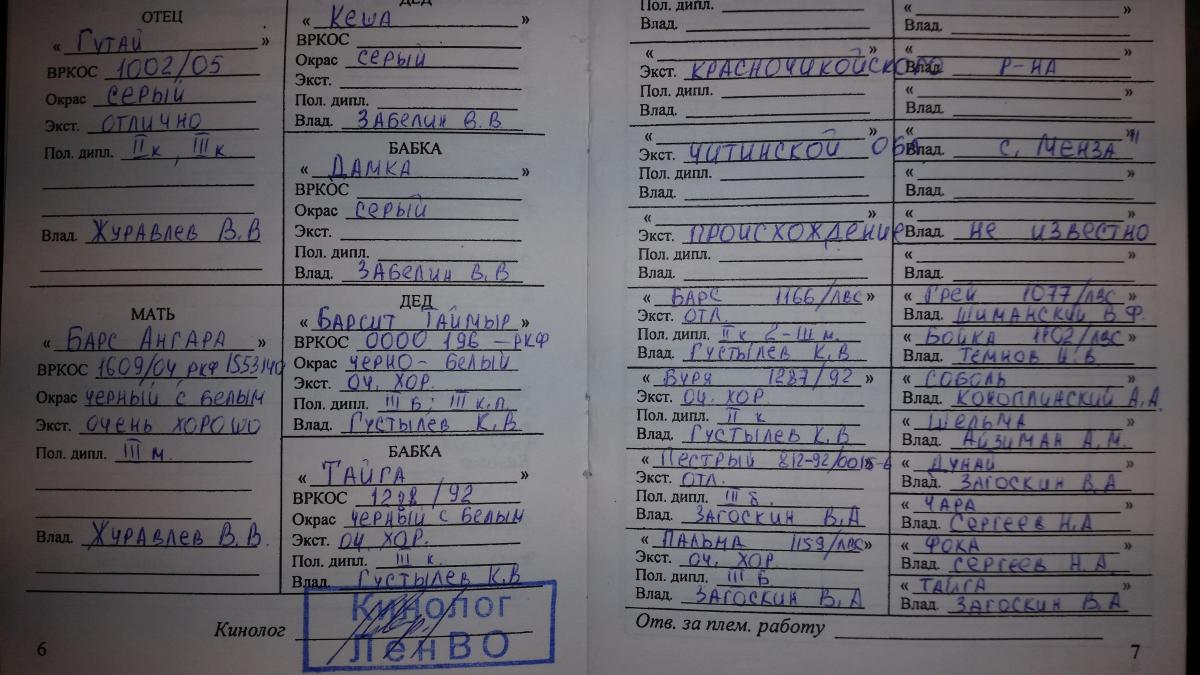 ОТЕЦ
« Гутай »
ВРКОС 1002/05
Окрас серый
Экст. отлично
Пол. дипл. II к, III к.
Влад. Журавлев В.В
МАТЬ
« Барс Ангара »
ВРКОС 1609/04 ркф 1553140
Окрас черный с белым
Экст. очень хорошо
Пол. дипл. III м.
Влад. Журавлев В.В.
ДЕД
« Кеша »
ВРКОС
Окрас серый
Экст.
Пол. дипл.
Влад. Забелин В.В
БАБКА
« Дамка »
ВРКОС
Окрас серый
Экст.
Пол. дипл.
Влад. Забелин В.В
ДЕД
« Барсит Таймыр »
ВРКОС 0000 196 – РКФ
Окрас черно - белый
Экст. оч. хор.
Пол. дипл. III Б; III к.п.
Влад. Густылев К.В
БАБКА
« Тайга »
ВРКОС 1288/92
Окрас черный с белым
Экст. оч. хор.
Пол. дипл. III к.
Влад. Густылев К.В
Кинолог
Кинолог
ЛенВО
6
Пол. дипл.
Влад.
« »
Экст. Красночикойского
Пол. дипл.
Влад.
« »
Экст. Читинской обл
Пол. дипл.
Влад.
« »
Экст. происхождение
Пол. дипл.
Влад.
« Барс 1166/лвс »
Экст. отл.
Пол. дипл. II к, 2-III м.
Влад. Густылев К.В
« Буря 1287/92 »
Экст. оч. хор
Пол. дипл. II к
Влад. Густылев К.В
« Пестрый 812-92/0015-6
Экст. отл.
Пол. дипл. III Б.
Влад. Загоскин В.А
« Пальма 1159/лвс »
Экст. оч. хор
Пол. дипл. III Б
Влад. Загоскин В.А
« »
Влад.
« »
Влад. р-на
« »
Влад.
« »
Влад. с. Менза"
« »
Влад.
« »
Влад. не известно
« »
Влад.
« Грей 1077/лвс »
Влад. Шиманский В.Ф.
« Бойка 1102/лвс »
Влад. Темнов И.В
« Соболь »
Влад. Коноплинский А.А.
« Шельма »
Влад. Айзиман А.М.
« Дунай »
Влад. Загоскин В.А
« Чара »
Влад. Сергеев Н.А
« Фока »
Влад. Сергеев Н.А.
« Тайга »
Влад. Загоскин В.А
Отв. за плем. работу
7